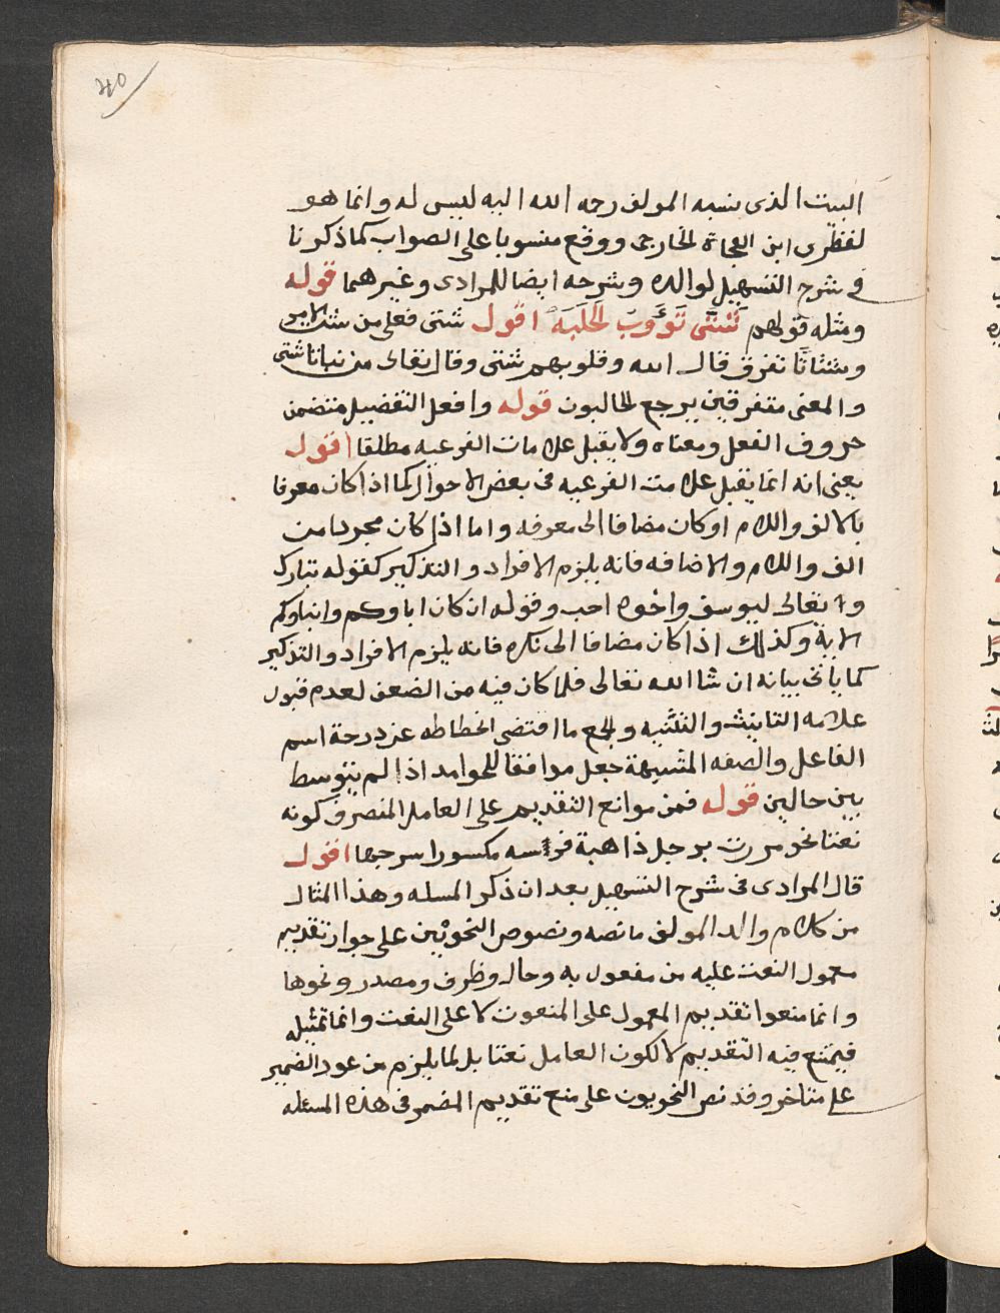 40
البيت الذى نسبه المولف رحمه الله اليه ليس له وانما هو
لقطرى ابن الفجاة الخارجى ووقع منسوبا على الصواب كما ذكرنا
فى شرح التسهيل لوالده وشرحه ايضا للمرادى وغيرهما قوله
ومثله قولهم شَتَّى تَؤُوبُ الحَلَبَة اقول شتى فعلى من شت الامر
وشتاتا تفرق قال الله وقلوبهم شتى وقال تعالى من نباتا شتى
والمعنى متفرقين يرجع الحالبون قوله وافعل التفضيل متضمن
حروف الفعل ومعناه ولا يقبل علامات الفرعيه مطلقا اقول
يعنى انه انما يقبل علامت الفرعيه فى بعض الاحوال كما اذا كان معرفا
بالالف واللام او كان مضافا الى معرفه واما اذا كان مجردا من
الف واللام والاضافه فانه يلزم الافراد والتذكير كقوله تبارك
وتعالى ليوسف واخوه احب وقوله ان كان اباوكم وابناوكم
الاية وكذلك اذا كان مضافا الى نكره فانه يلزم الافراد والتذكير
كما ياتى بيانه ان شا الله تعالى فلما كان فيه من الضعف لعدم قبول
علامه التانيث والتثنيه والجمع ما اقتضى انحطاطه عن درجة اسم
الفاعل والصفه المشبهة جعل موافقا للجوامد اذا لم يتوسط
بين حالين قوله فمن موانع التقديم على العامل المتصرف كونه
نعتا نحو مررت برجل ذاهبة فرسه مكسورا سرجها اقول
قال المرادى فى شرح التسهيل بعد ان ذكر المسله وهذا المثال
من كلام والد المولف ما نصه ونصوص النحويين على جواز تقديم
معمول النعت عليه من مفعول به وحال وظرف ومصدر ونحوها
وانما منعوا تقديم المعمول على المنعوت لا على النعت وانما تمثيله
فيمتنع فيه التقديم لا لكون العامل نعتا بل لما يلزم من عود الضمير
على متاخر وقد نص النحويون على منع تقديم المضمر فى هذه المسئله